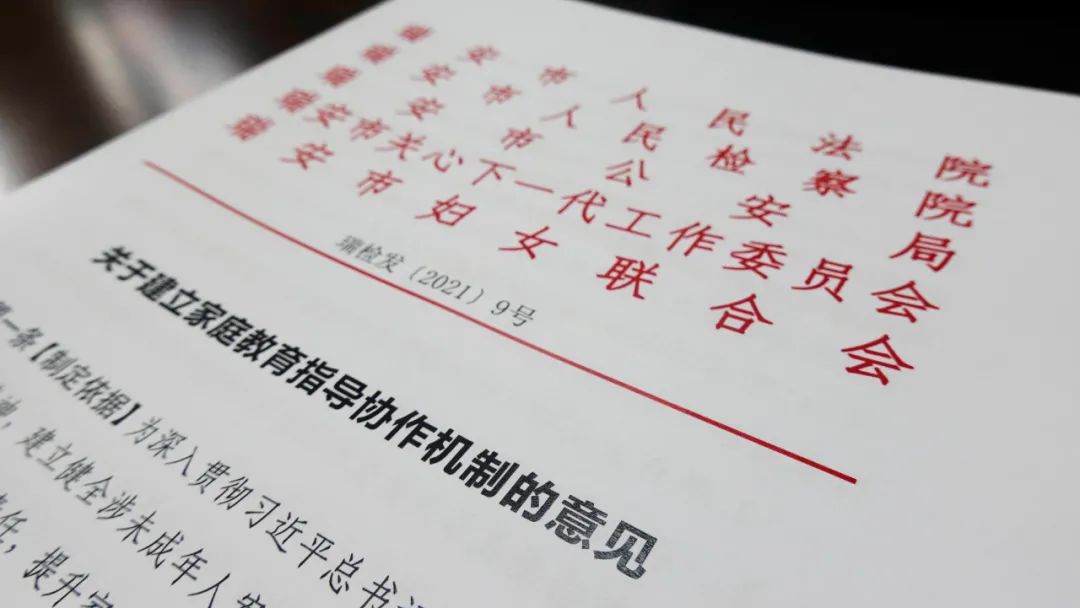 瑞安市人民法院
瑞安市人民检察院
瑞安市公安局
瑞安市关心下一代工作委员会
瑞安市妇女联合会
瑞检发（2021）9号
关于建立家庭教育指导协作机制的意见
一条【制定依据】为深入贯彻习近平总书
，建立健全涉未成年人
任，提升